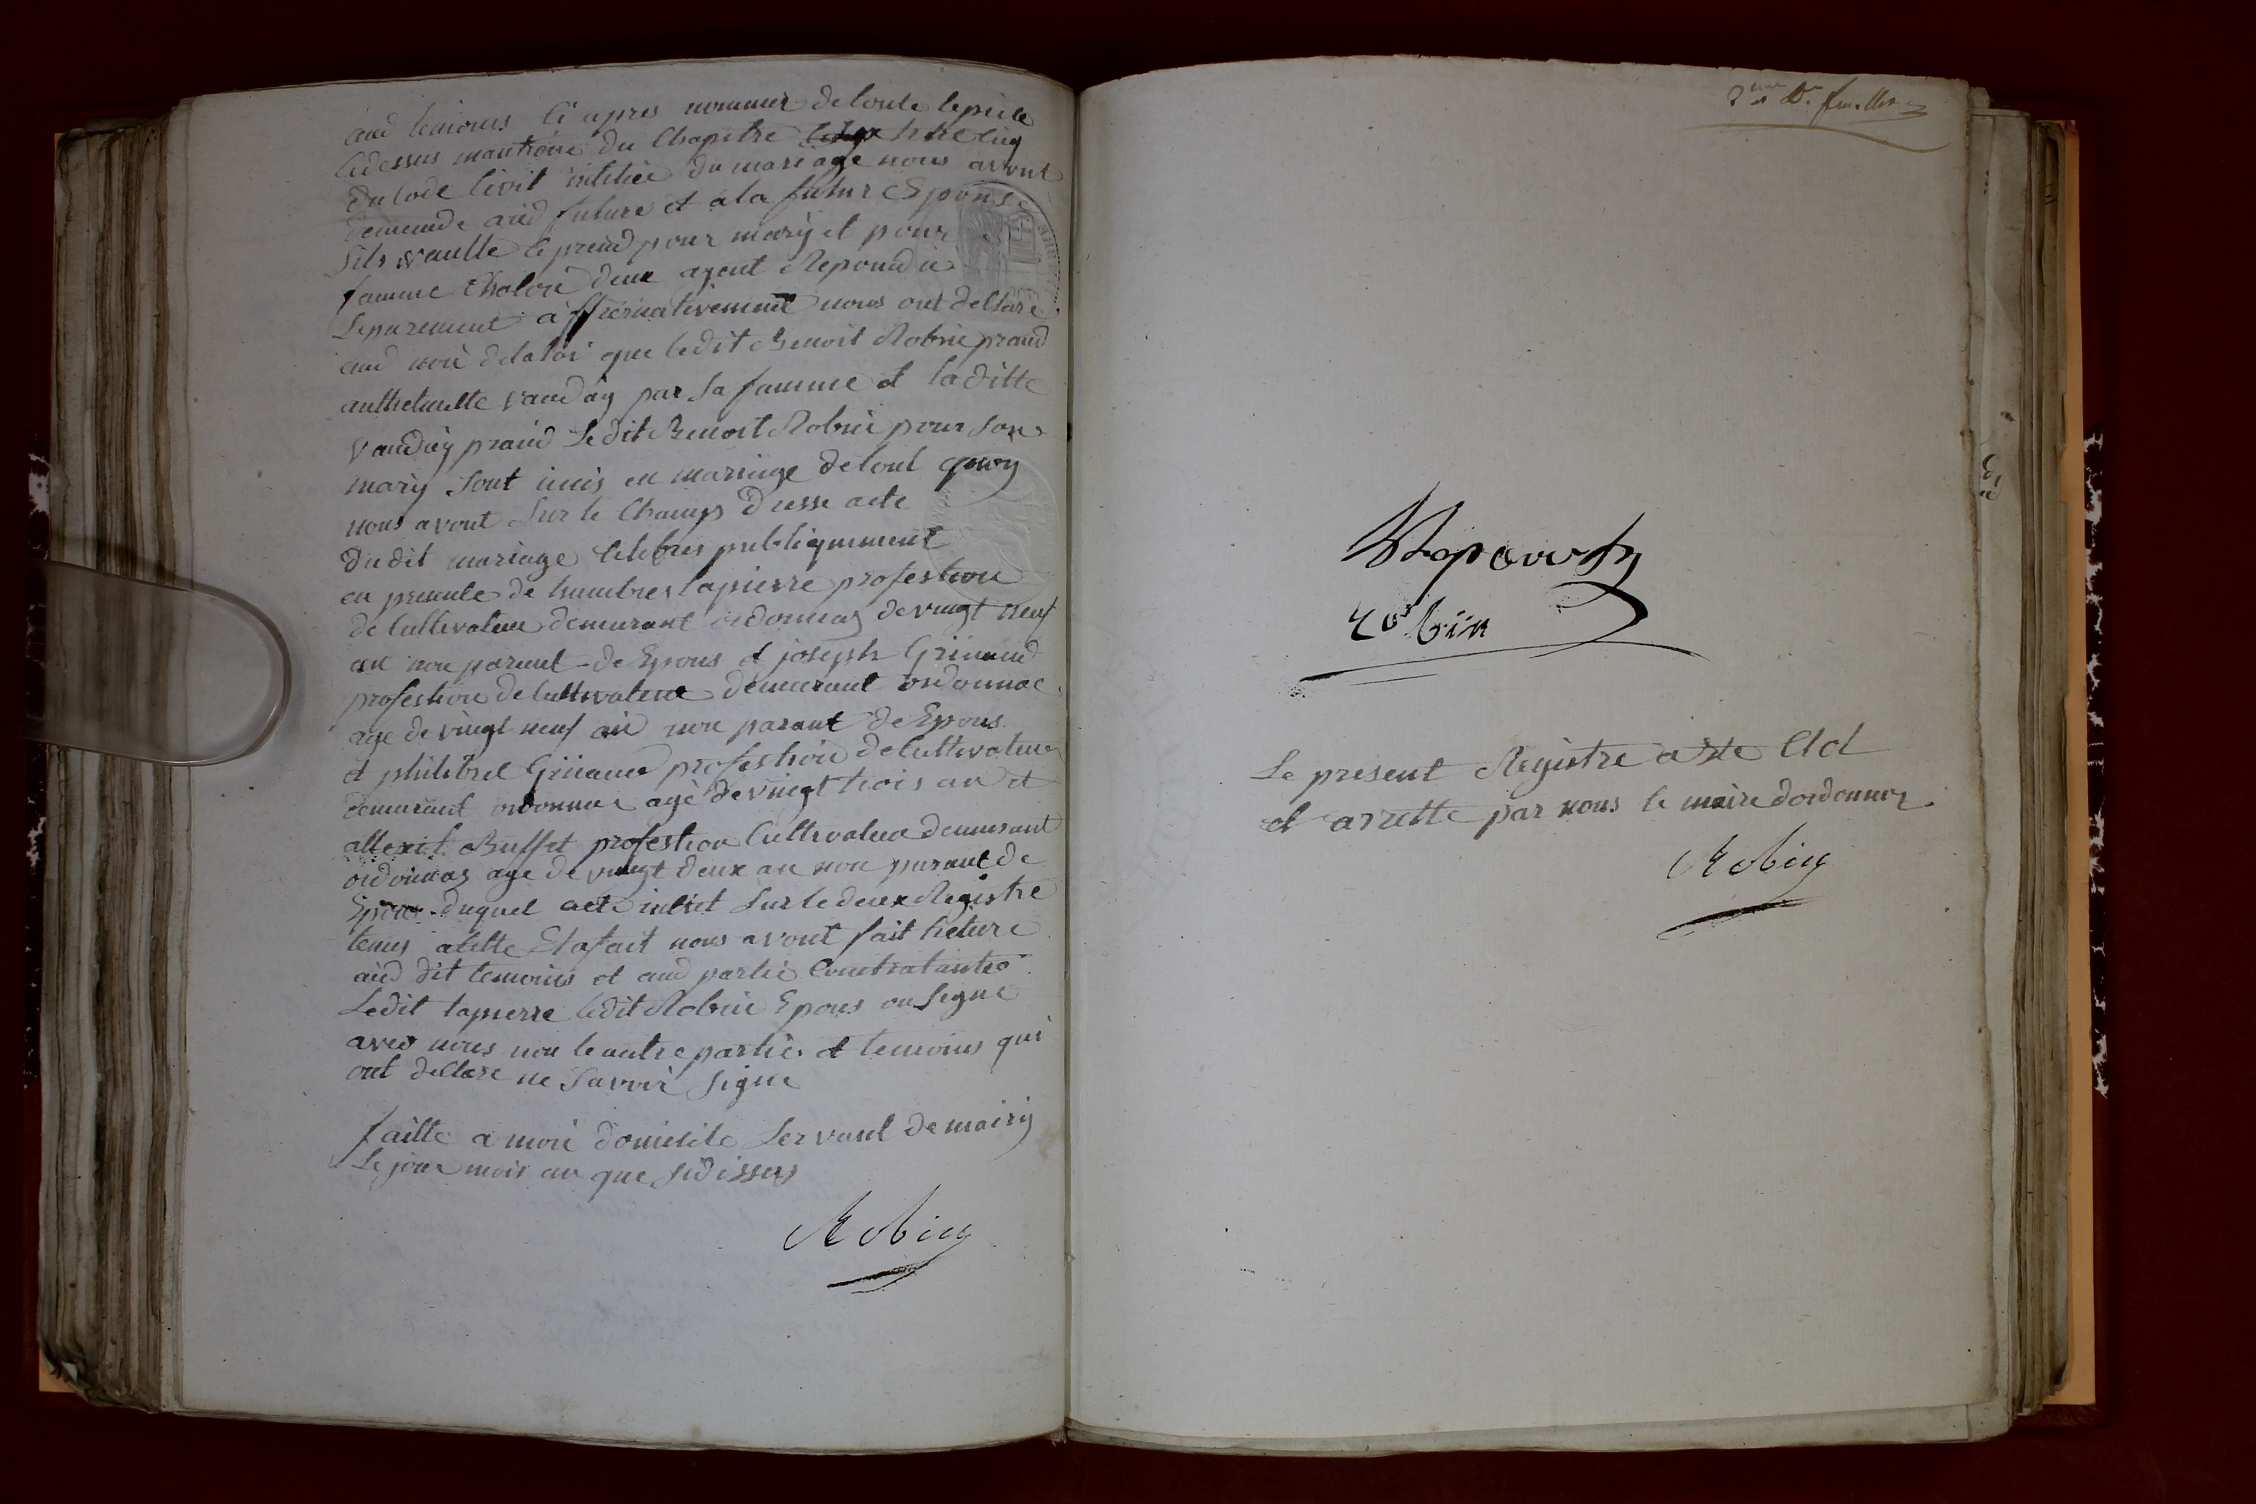 aud temoins ci apres nommer de toute le piece
cidessus mantione du Chapitre titre cinq
du Code Civil intitée du mariage nous avont
demende aud future et a la futur Epouse
sils vaulle ce prend pour mary et pour
famme Chalore deux ayent Repondu
separement affirmativement nous ont declare
aud nom de la loi que ledit Benoit Robin prand
anthelmette Vauday par sa famme et laditte
Vauday prand Ledit Benoit Robin pour son
mary sont unis en mariage de tout quoy
nous avont sur le Champs dresse acte
dudit mariage celebres publiquement
en presente de humbres lapierre profession
de Cultivateur demurant ordonnaz de vingt neuf
an non parent de Epous et joseph Grimaud
profession de Cultivateur demurant ordonnac
age de vingt neuf an non parant de Epous
et philibrel Grimaud profession de Cultivateur
demurant ordonnac agé de vingt trois an et
allexit Buffet profession Cultivateur demurant
ordonnaz age de vingt deux an non parant de
Epous duquel acte inscit sur le deux Registre
tenus a cette Etafait nous avont fait lieture
aud dit temoins et aud partie Contratantes
Ledit lapierre ledit Robin Epous on signe
avec nous non le autre partie et temoins qui
ont declare ne savoir signe
faitte a mon domicile servant de mairiy
Le jour mois an que sidissus
Robin
2me Dr feuillet
Lapierre
robin
Le present Registre a ete Clol
et arrette par nous le maire dordonnaz
Robin